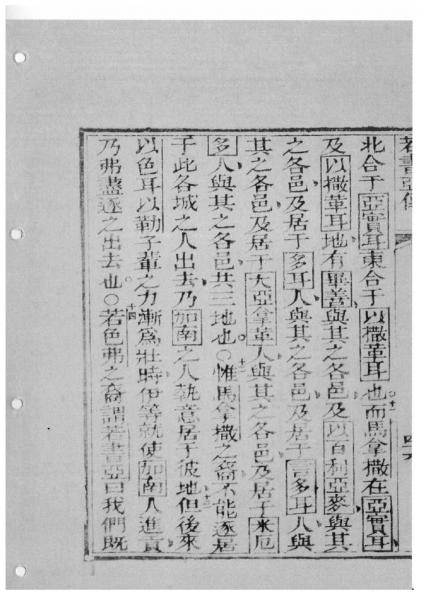 若書亞傳
北合于亞實耳東合于以撒革耳也○十一而馬拿撒在亞實耳
及以撒革耳地有畢善與其之各邑及以百利亞麥與其
之各邑及居于多耳人與其之各邑及居于音多耳人與
其之各邑及居于大亞拿革人與其之各邑及居于米厄
多人與其之各邑共三地也○十二惟馬拿撒之裔不能逐居
于此各城之人出去乃加南之人執意居于彼地十三但後來
以色耳以勒子輩之力漸爲壯時伊等就使加南人進貢
乃弗盡逐之出去也○十四若色弗之裔謂若書亞曰我們既